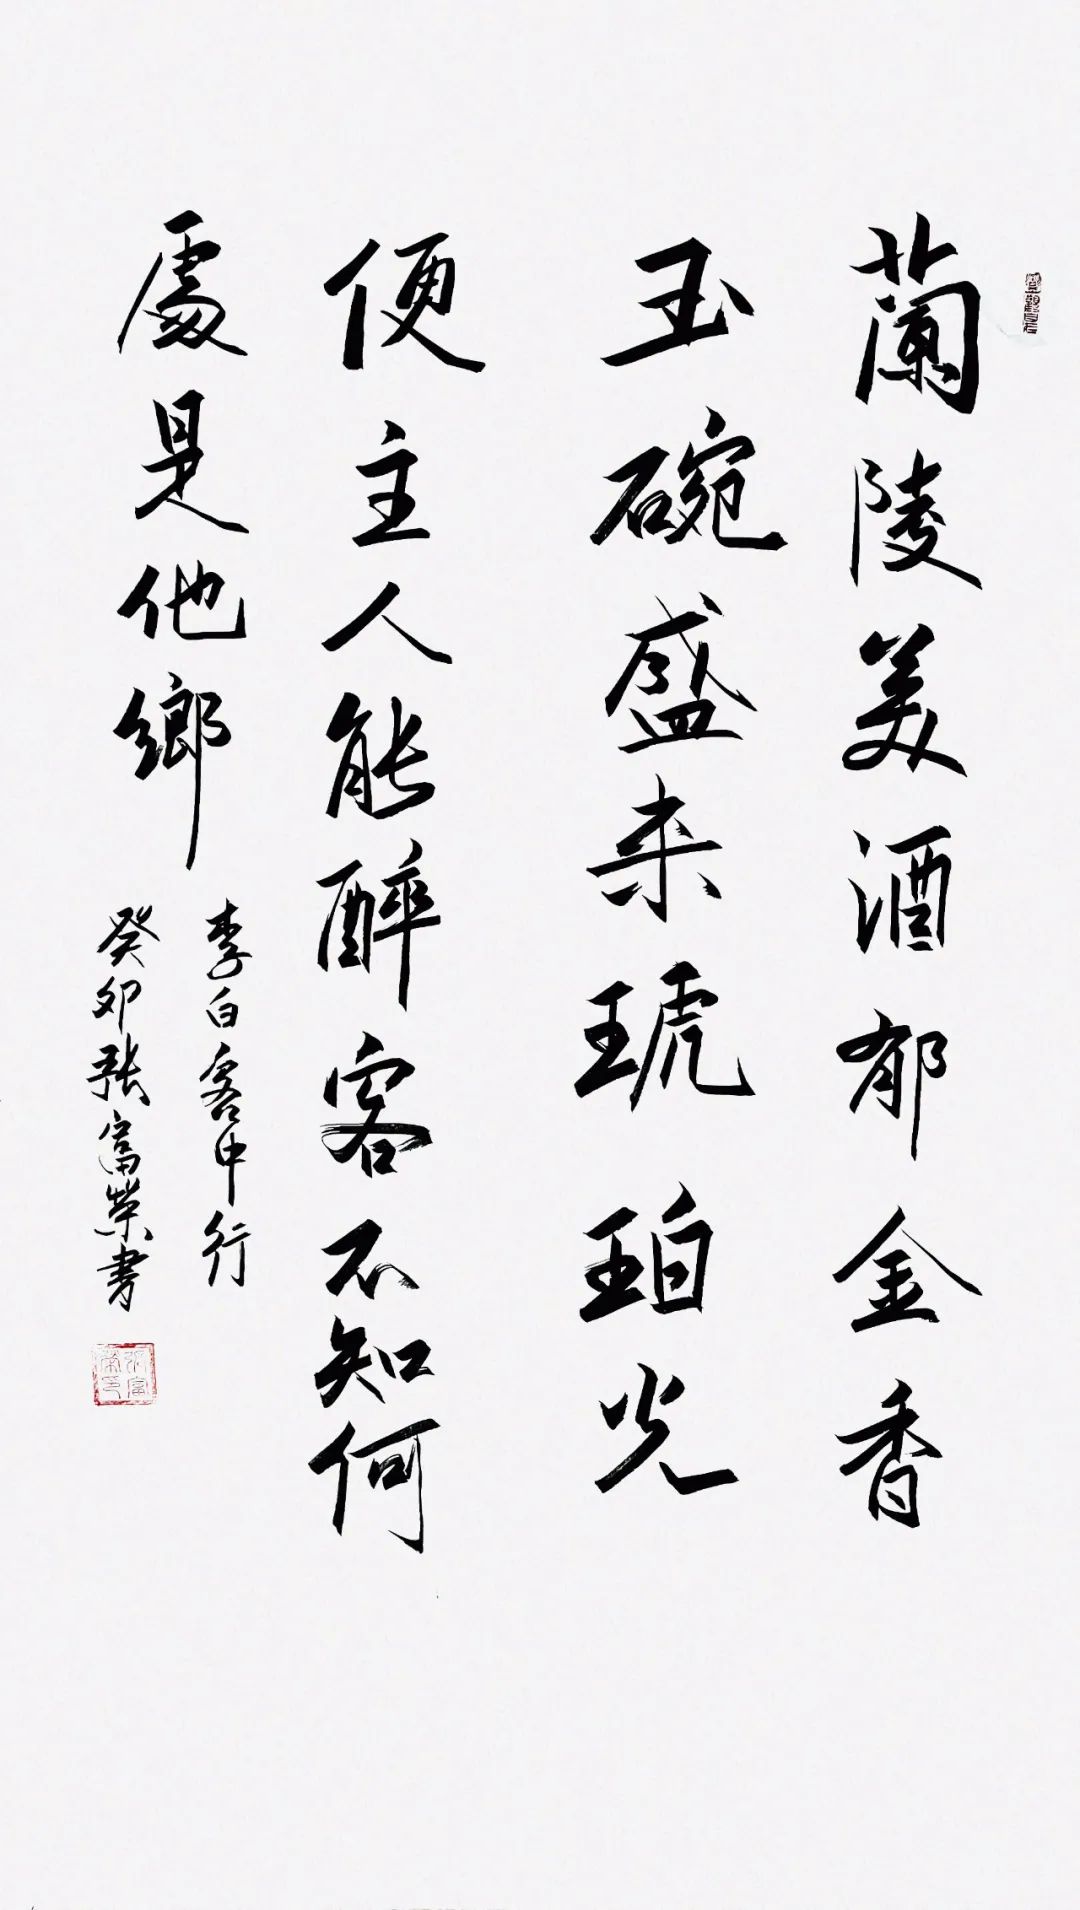 蘭陵美酒郁金香
玉碗盛来琥珀光
便主人能醉客不知何
處是他鄉
李白客中行
癸卯張富榮書